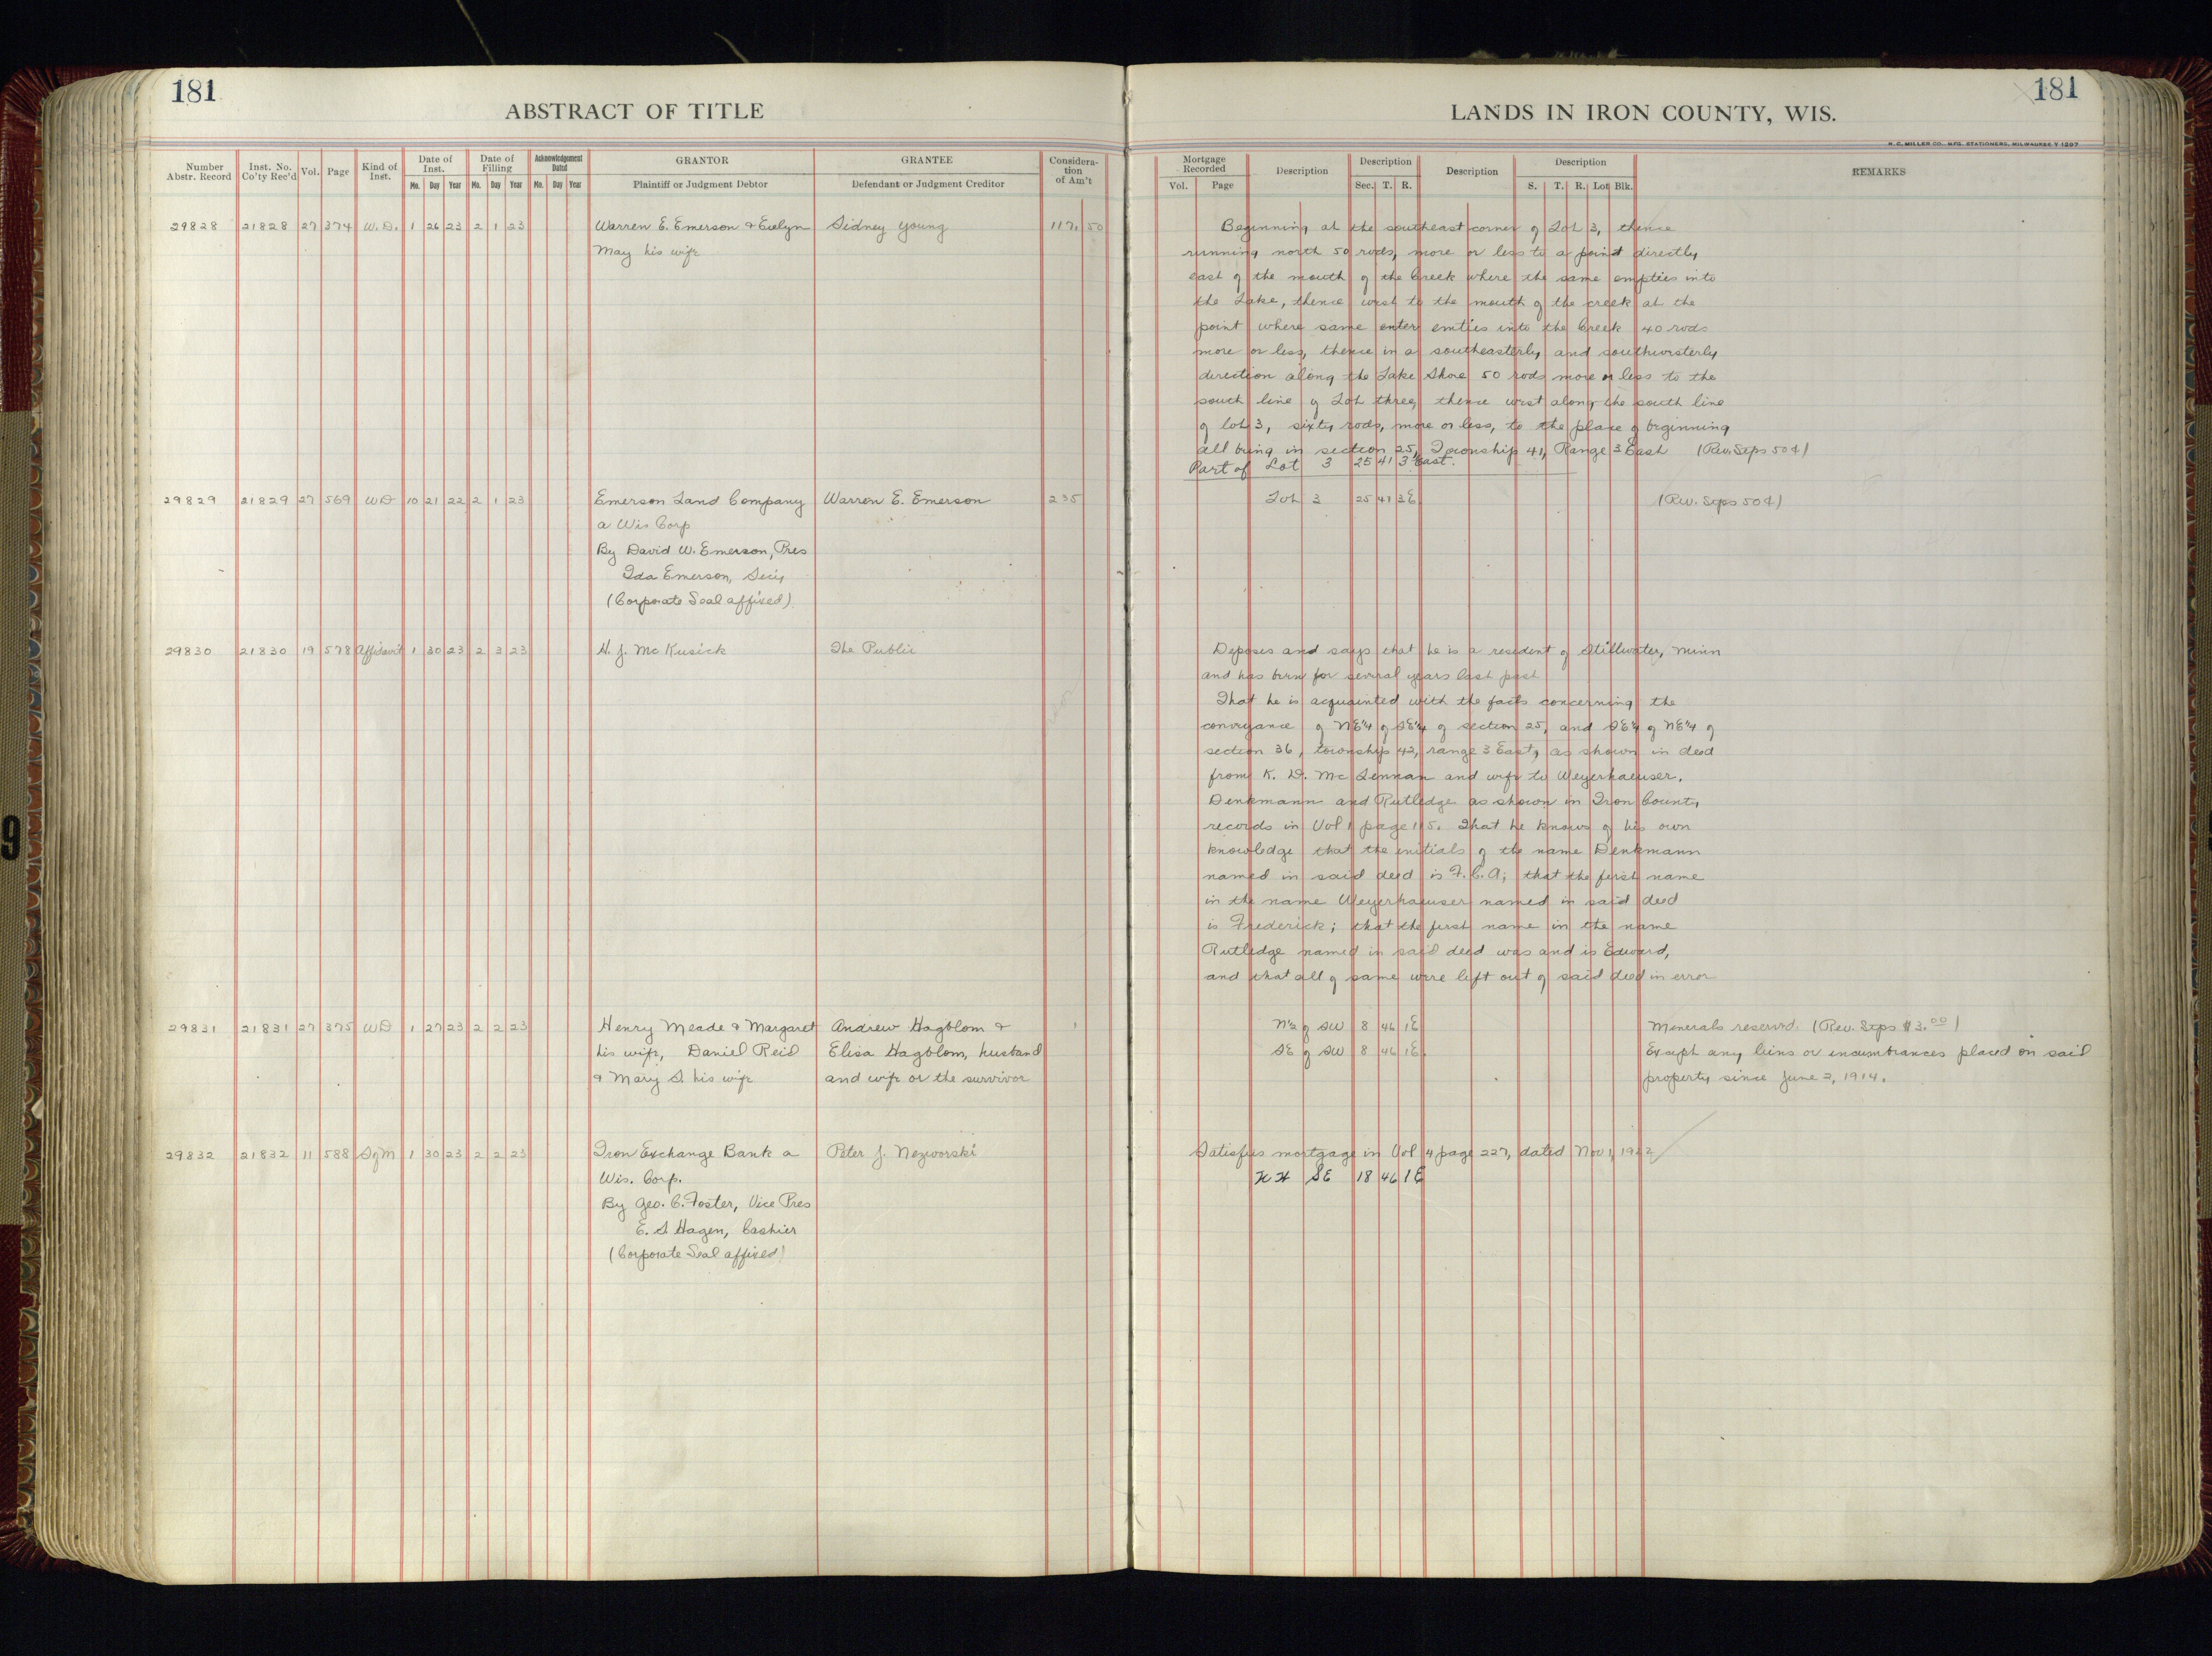 181
ABSTRACT OF TITLE
Number Abstr. Record Inst. No. Co'ty Rec'd Vol. Page Kind of Inst. Date of Inst. Mo. Day Year Date of Filling Mo. Day Year Acknowledgement Dated Mo. Day Year GRANTOR Plaintiff or Judgment Debtor GRANTEE Defendant or Judgment Creditor Considera-tion of Am't
29828 21828 27 374 W.D. 1 26 23 2 1 23 Warren E. Emerson & Evelyn Sidney Young 117. 50
May his wife
29829 21829 27 569 WD 10 21 22 2 1 23 Emerson Land Company Warren E. Emerson 235
a Wis Corp
By David W. Emerson, Pres
Ida Emerson, Secy
(Corporate Seal affixed)
29830 21830 19 578 Affidavit 1 30 23 2 3 23 H. J. McKusick The Public
29831 21831 27 375 WD 1 27 23 2 2 23 Henry Meade & Margaret Andrew Hagblom & 1
his wife, Daniel Reid Elisa Hagblom, husband
& Mary S. his wife and wife or the survivor
29832 21832 11 588 SgM 1 30 23 2 2 23 Iron Exchange Bank a Peter J. Nezworski
Wis. Corp.
By Geo. C. Foster, Vice Pres
E. S. Hagen, Cashier
(Corporate Seal affixed)
181
LANDS IN IRON COUNTY, WIS.
H. C. MILLER CO., MFG. STATIONERS, MILWAUKEE
Mortgage Recorded Vol. Page Description Description Sec. T. R. Description Description S. T. R. Lot Blk. REMARKS
Beginning at the southeast corner of Lot 3, thence
running north 50 rods, more or less to a point directly
east of the mouth of the Creek where the same empties into
the Lake, thence west to the mouth of the creek at the
point where same enters emties into the Creek 40 rods
more or less, thence in a southeasterly and southwesterly
direction along the Lake Shore 50 rods more or less to the
south line of Lot three, thence west along the south line
of lot 3, sixty rods, more or less, to the place of beginning
all being in section 25, Township 41, Range 3 East (Rev. Stps 50¢)
Part of Lot 3 25 41 3 East.
Lot 3 25 41 3E (Rev. Stps 50¢)
Deposes and says that he is a resident of Stillwater, Minn
and has been for several years last past
That he is acquainted with the facts concerning the
conveyance of NE¼ of SE¼ of section 25, and SE¼ of NE¼ of
section 36, township 42, range 3 East, as shown in deed
from K. D. McLennan and wife to Weyerhaeuser,
Denkmann and Rutledge as shown in Iron County
records in Vol 1 page 115. That he knows of his own
knowledge that the initials of the name Denkmann
named in said deed is F.C.A; that the first name
in the name Weyerhaeuser named in said deed
is Frederick; that the first name in the name
Rutledge named in said deed was and is Edward,
and that all of same were left out of said deed in error
N½ of SW 8 46 1E Minerals reserved. (Rev. Stps $3.00)
SE of SW 8 46 1E Except any liens or encumbrances placed on said
property since June 2, 1914.
Satisfies mortgage in Vol 4 page 227, dated Nov 1, 1922
SE 18 46 1E